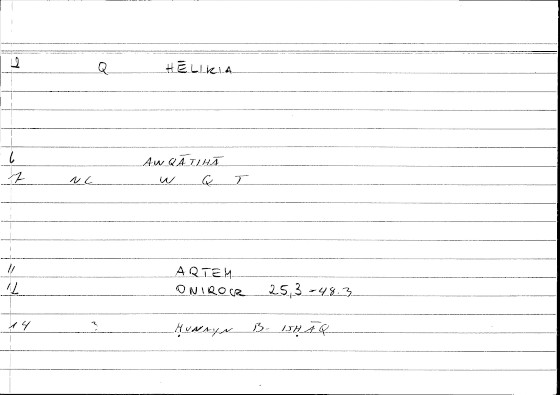 2 Q HĒLIKIA
6 AWQĀTIHĀ
7 NC W Q T
11 ARTEM
12 ONIROCR 25,3-48.3
14 3 ḤUNAYN B- ISḤĀQ